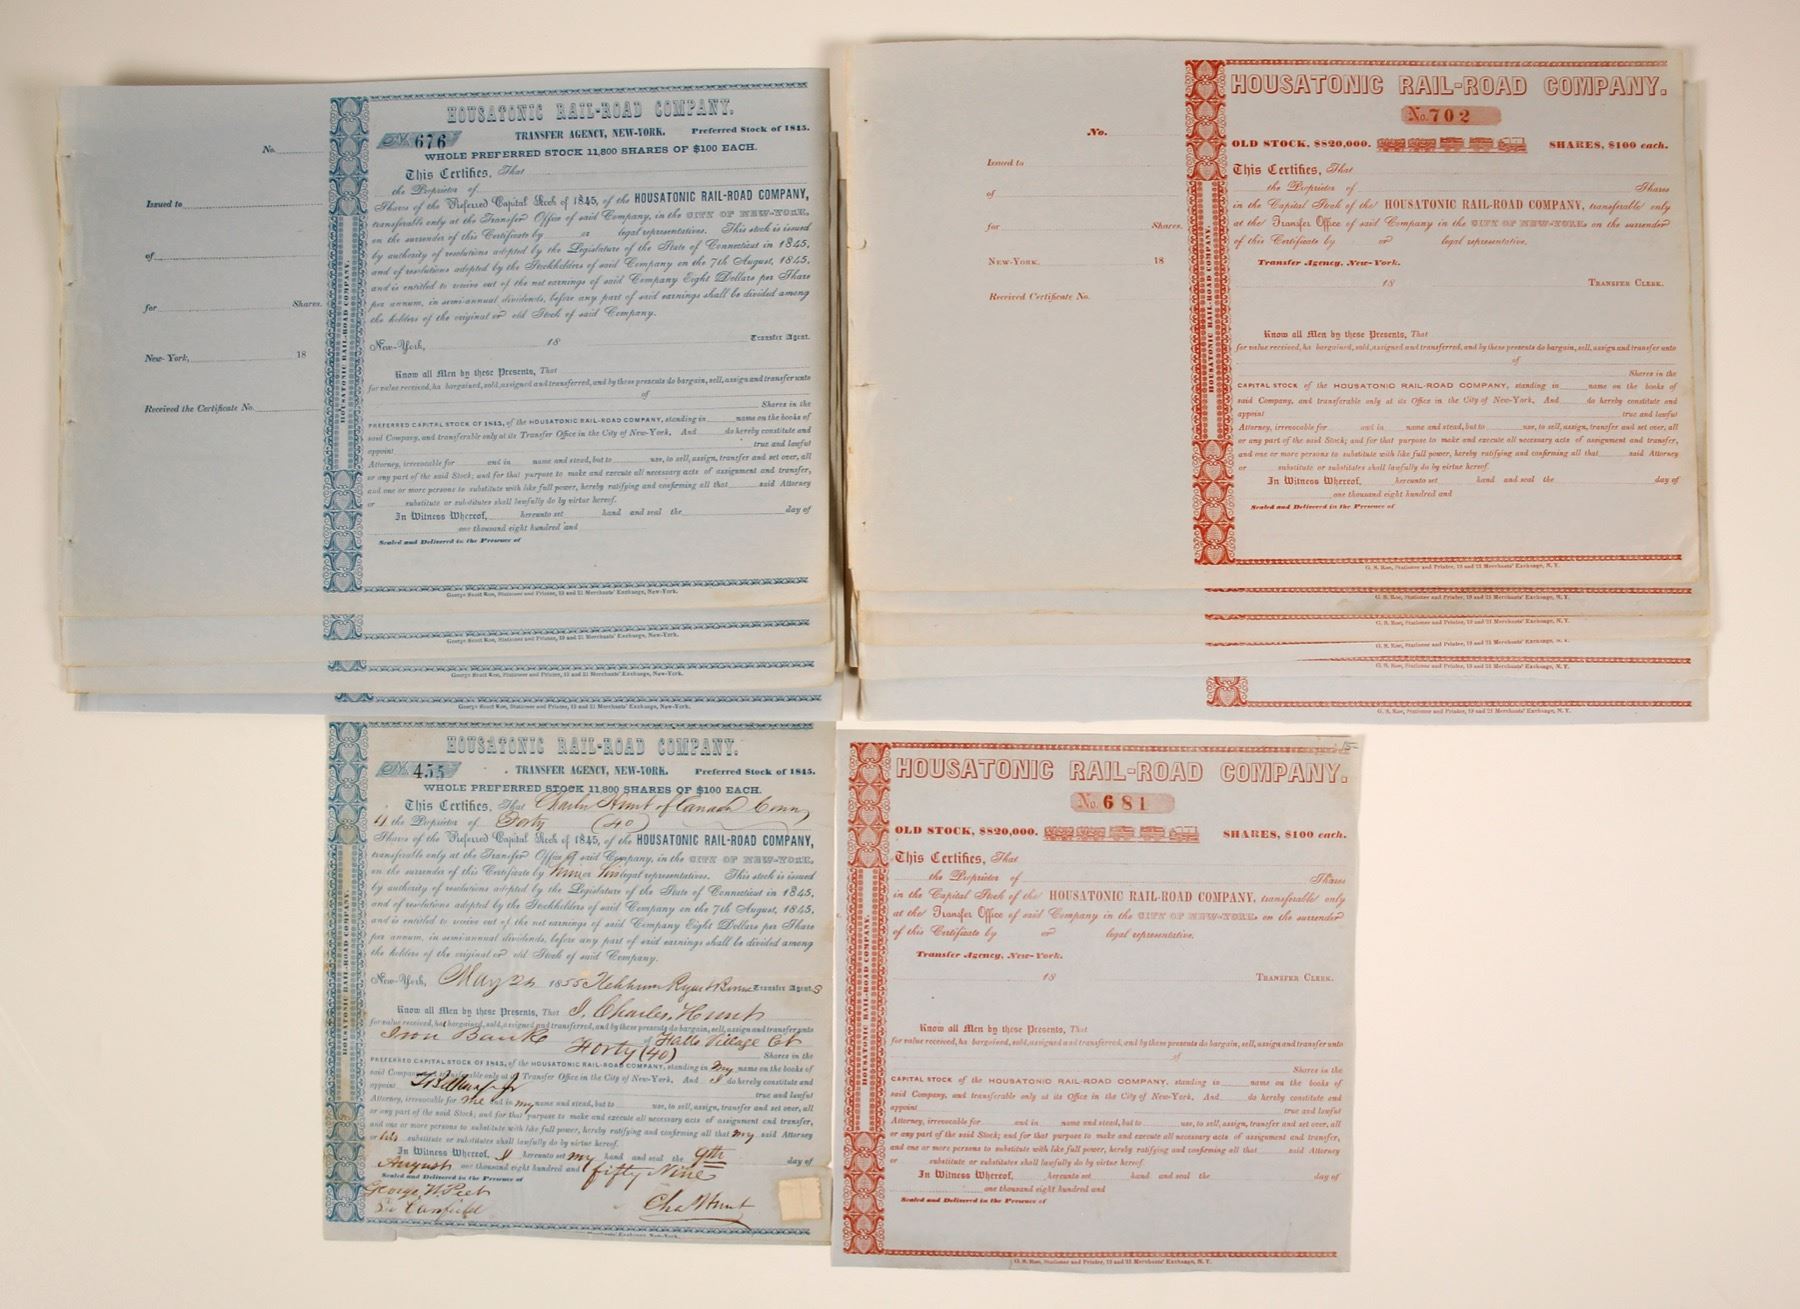 HOUSATONIC RAIL-ROAD COMPANY.
No. 676 TRANSFER AGENCY, NEW-YORK. Preferred Stock of 1845.
WHOLE PREFERRED STOCK 11,800 SHARES OF $100 EACH.
No.
Issued to
of
for Shares.
New-York, 18
Received the Certificate No.
HOUSATONIC RAIL-ROAD COMPANY.
This Certifies, That
the Proprietor of
Shares of the Preferred Capital Stock of 1845, of the HOUSATONIC RAIL-ROAD COMPANY,
transferable only at the Transfer Office of said Company, in the CITY OF NEW-YORK,
on the surrender of this Certificate by or legal representatives. This stock is issued
by authority of resolutions adopted by the Legislature of the State of Connecticut in 1845,
and of resolutions adopted by the Stockholders of said Company on the 7th August, 1845,
and is entitled to receive out of the net earnings of said Company Eight Dollars per Share
per annum, in semi-annual dividends, before any part of said earnings shall be divided among
the holders of the original or old Stock of said Company.
New-York, 18 Transfer Agent.
Know all Men by these Presents, That
for value received, ha bargained, sold, assigned and transferred, and by these presents do bargain, sell, assign and transfer unto
of
Shares in the
PREFERRED CAPITAL STOCK OF 1845, of the HOUSATONIC RAIL-ROAD COMPANY, standing in name on the books of
said Company, and transferable only at its Transfer Office in the City of New-York. And do hereby constitute and
appoint true and lawful
Attorney, irrevocable for and in name and stead, but to use, to sell, assign, transfer and set over, all
or any part of the said Stock; and for that purpose to make and execute all necessary acts of assignment and transfer,
and one or more persons to substitute with like full power, hereby ratifying and confirming all that said Attorney
or substitute or substitutes shall lawfully do by virtue hereof.
In Witness Whereof, hereunto set hand and seal the day of
one thousand eight hundred and
Sealed and Delivered in the Presence of
George Scott Roe, Stationer and Printer, 19 and 21 Merchants' Exchange, New-York.
George Scott Roe, Stationer and Printer, 19 and 21 Merchants' Exchange, New-York.
George Scott Roe, Stationer and Printer, 19 and 21 Merchants' Exchange, New-York.
George Scott Roe, Stationer and Printer, 19 and 21 Merchants' Exchange, New-York.
HOUSATONIC RAIL-ROAD COMPANY.
No. 702
OLD STOCK, $820,000. SHARES, $100 each.
No.
Issued to
of
for Shares.
NEW-YORK, 18
Received Certificate No.
HOUSATONIC RAIL-ROAD COMPANY.
This Certifies, That
the Proprietor of Shares
in the Capital Stock of the HOUSATONIC RAIL-ROAD COMPANY, transferable only
at the Transfer Office of said Company in the CITY OF NEW-YORK, on the surrender
of this Certificate by or legal representative.
Transfer Agency, New-York.
18 TRANSFER CLERK.
Know all Men by these Presents, That
for value received, ha bargained, sold, assigned and transferred, and by these presents do bargain, sell, assign and transfer unto
of
Shares in the
CAPITAL STOCK of the HOUSATONIC RAIL-ROAD COMPANY, standing in name on the books of
said Company, and transferable only at its Office in the City of New-York, And do hereby constitute and
appoint true and lawful
Attorney, irrevocable for and in name and stead, but to use, to sell, assign, transfer and set over, all
or any part of the said Stock; and for that purpose to make and execute all necessary acts of assignment and transfer,
and one or more persons to substitute with like full power, hereby ratifying and confirming all that said Attorney
or substitute or substitutes shall lawfully do by virtue hereof.
In Witness Whereof, hereunto set hand and seal the day of
one thousand eight hundred and
Sealed and Delivered in the Presence of
G. S. Roe, Stationer and Printer, 19 and 21 Merchants' Exchange, N. Y.
G. S. Roe, Stationer and Printer, 19 and 21 Merchants' Exchange, N. Y.
G. S. Roe, Stationer and Printer, 19 and 21 Merchants' Exchange, N. Y.
G. S. Roe, Stationer and Printer, 19 and 21 Merchants' Exchange, N. Y.
G. S. Roe, Stationer and Printer, 19 and 21 Merchants' Exchange, N. Y.
G. S. Roe, Stationer and Printer, 19 and 21 Merchants' Exchange, N. Y.
HOUSATONIC RAIL-ROAD COMPANY.
No. 455 TRANSFER AGENCY, NEW-YORK. Preferred Stock of 1845.
WHOLE PREFERRED STOCK 11,800 SHARES OF $100 EACH.
HOUSATONIC RAIL-ROAD COMPANY.
This Certifies, That Charles Hunt of Canaan Conn
is the Proprietor of Forty (40)
Shares of the Preferred Capital Stock of 1845, of the HOUSATONIC RAIL-ROAD COMPANY,
transferable only at the Transfer Office of said Company, in the CITY OF NEW-YORK,
on the surrender of this Certificate by him or his legal representatives. This stock is issued
by authority of resolutions adopted by the Legislature of the State of Connecticut in 1845,
and of resolutions adopted by the Stockholders of said Company on the 7th August, 1845,
and is entitled to receive out of the net earnings of said Company Eight Dollars per Share
per annum, in semi-annual dividends, before any part of said earnings shall be divided among
the holders of the original or old Stock of said Company.
New-York, May 24 1855 Transfer Agents
Know all Men by these Presents, That I, Charles Hunt
for value received, ha bargained, sold, assigned and transferred, and by these presents do bargain, sell, assign and transfer unto
Iron Bank of Falls Village Ct
Forty (40) Shares in the
PREFERRED CAPITAL STOCK OF 1845, of the HOUSATONIC RAIL-ROAD COMPANY, standing in my name on the books of
said Company, and transferable only at its Transfer Office in the City of New-York. And I do hereby constitute and
appoint true and lawful
Attorney, irrevocable for me and in my name and stead, but to use, to sell, assign, transfer and set over, all
or any part of the said Stock; and for that purpose to make and execute all necessary acts of assignment and transfer,
and one or more persons to substitute with like full power, hereby ratifying and confirming all that my said Attorney
or his substitute or substitutes shall lawfully do by virtue hereof.
In Witness Whereof, I hereunto set my hand and seal the 9th day of
August one thousand eight hundred and fifty Nine
Sealed and Delivered in the Presence of
George W. Peet
Canfield
Chas Hunt
Merchants' Exchange, New-York.
15-
HOUSATONIC RAIL-ROAD COMPANY.
No. 681
OLD STOCK, $820,000. SHARES, $100 each.
HOUSATONIC RAIL-ROAD COMPANY.
This Certifies, That
the Proprietor of Shares
in the Capital Stock of the HOUSATONIC RAIL-ROAD COMPANY, transferable only
at the Transfer Office of said Company in the CITY OF NEW-YORK, on the surrender
of this Certificate by or legal representative.
Transfer Agency, New-York.
18 TRANSFER CLERK.
Know all Men by these Presents, That
for value received, ha bargained, sold, assigned and transferred, and by these presents do bargain, sell, assign and transfer unto
of
Shares in the
CAPITAL STOCK of the HOUSATONIC RAIL-ROAD COMPANY, standing in name on the books of
said Company, and transferable only at its Office in the City of New-York, And do hereby constitute and
appoint true and lawful
Attorney, irrevocable for and in name and stead, but to use, to sell, assign, transfer and set over, all
or any part of the said Stock; and for that purpose to make and execute all necessary acts of assignment and transfer,
and one or more persons to substitute with like full power, hereby ratifying and confirming all that said Attorney
or substitute or substitutes shall lawfully do by virtue hereof.
In Witness Whereof, hereunto set hand and seal the day of
one thousand eight hundred and
Sealed and Delivered in the Presence of
G. S. Roe, Stationer and Printer, 19 and 21 Merchants' Exchange, N. Y.